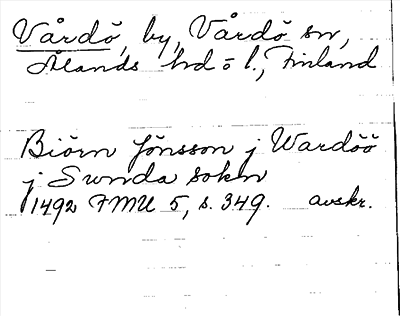 Vårdö, by, Vårdö sn,
Ålands hd o l., Finland
Biörn Jönsson j Wardöö
j Swnda sokn
1492 FMU 5, s. 349. avskr.